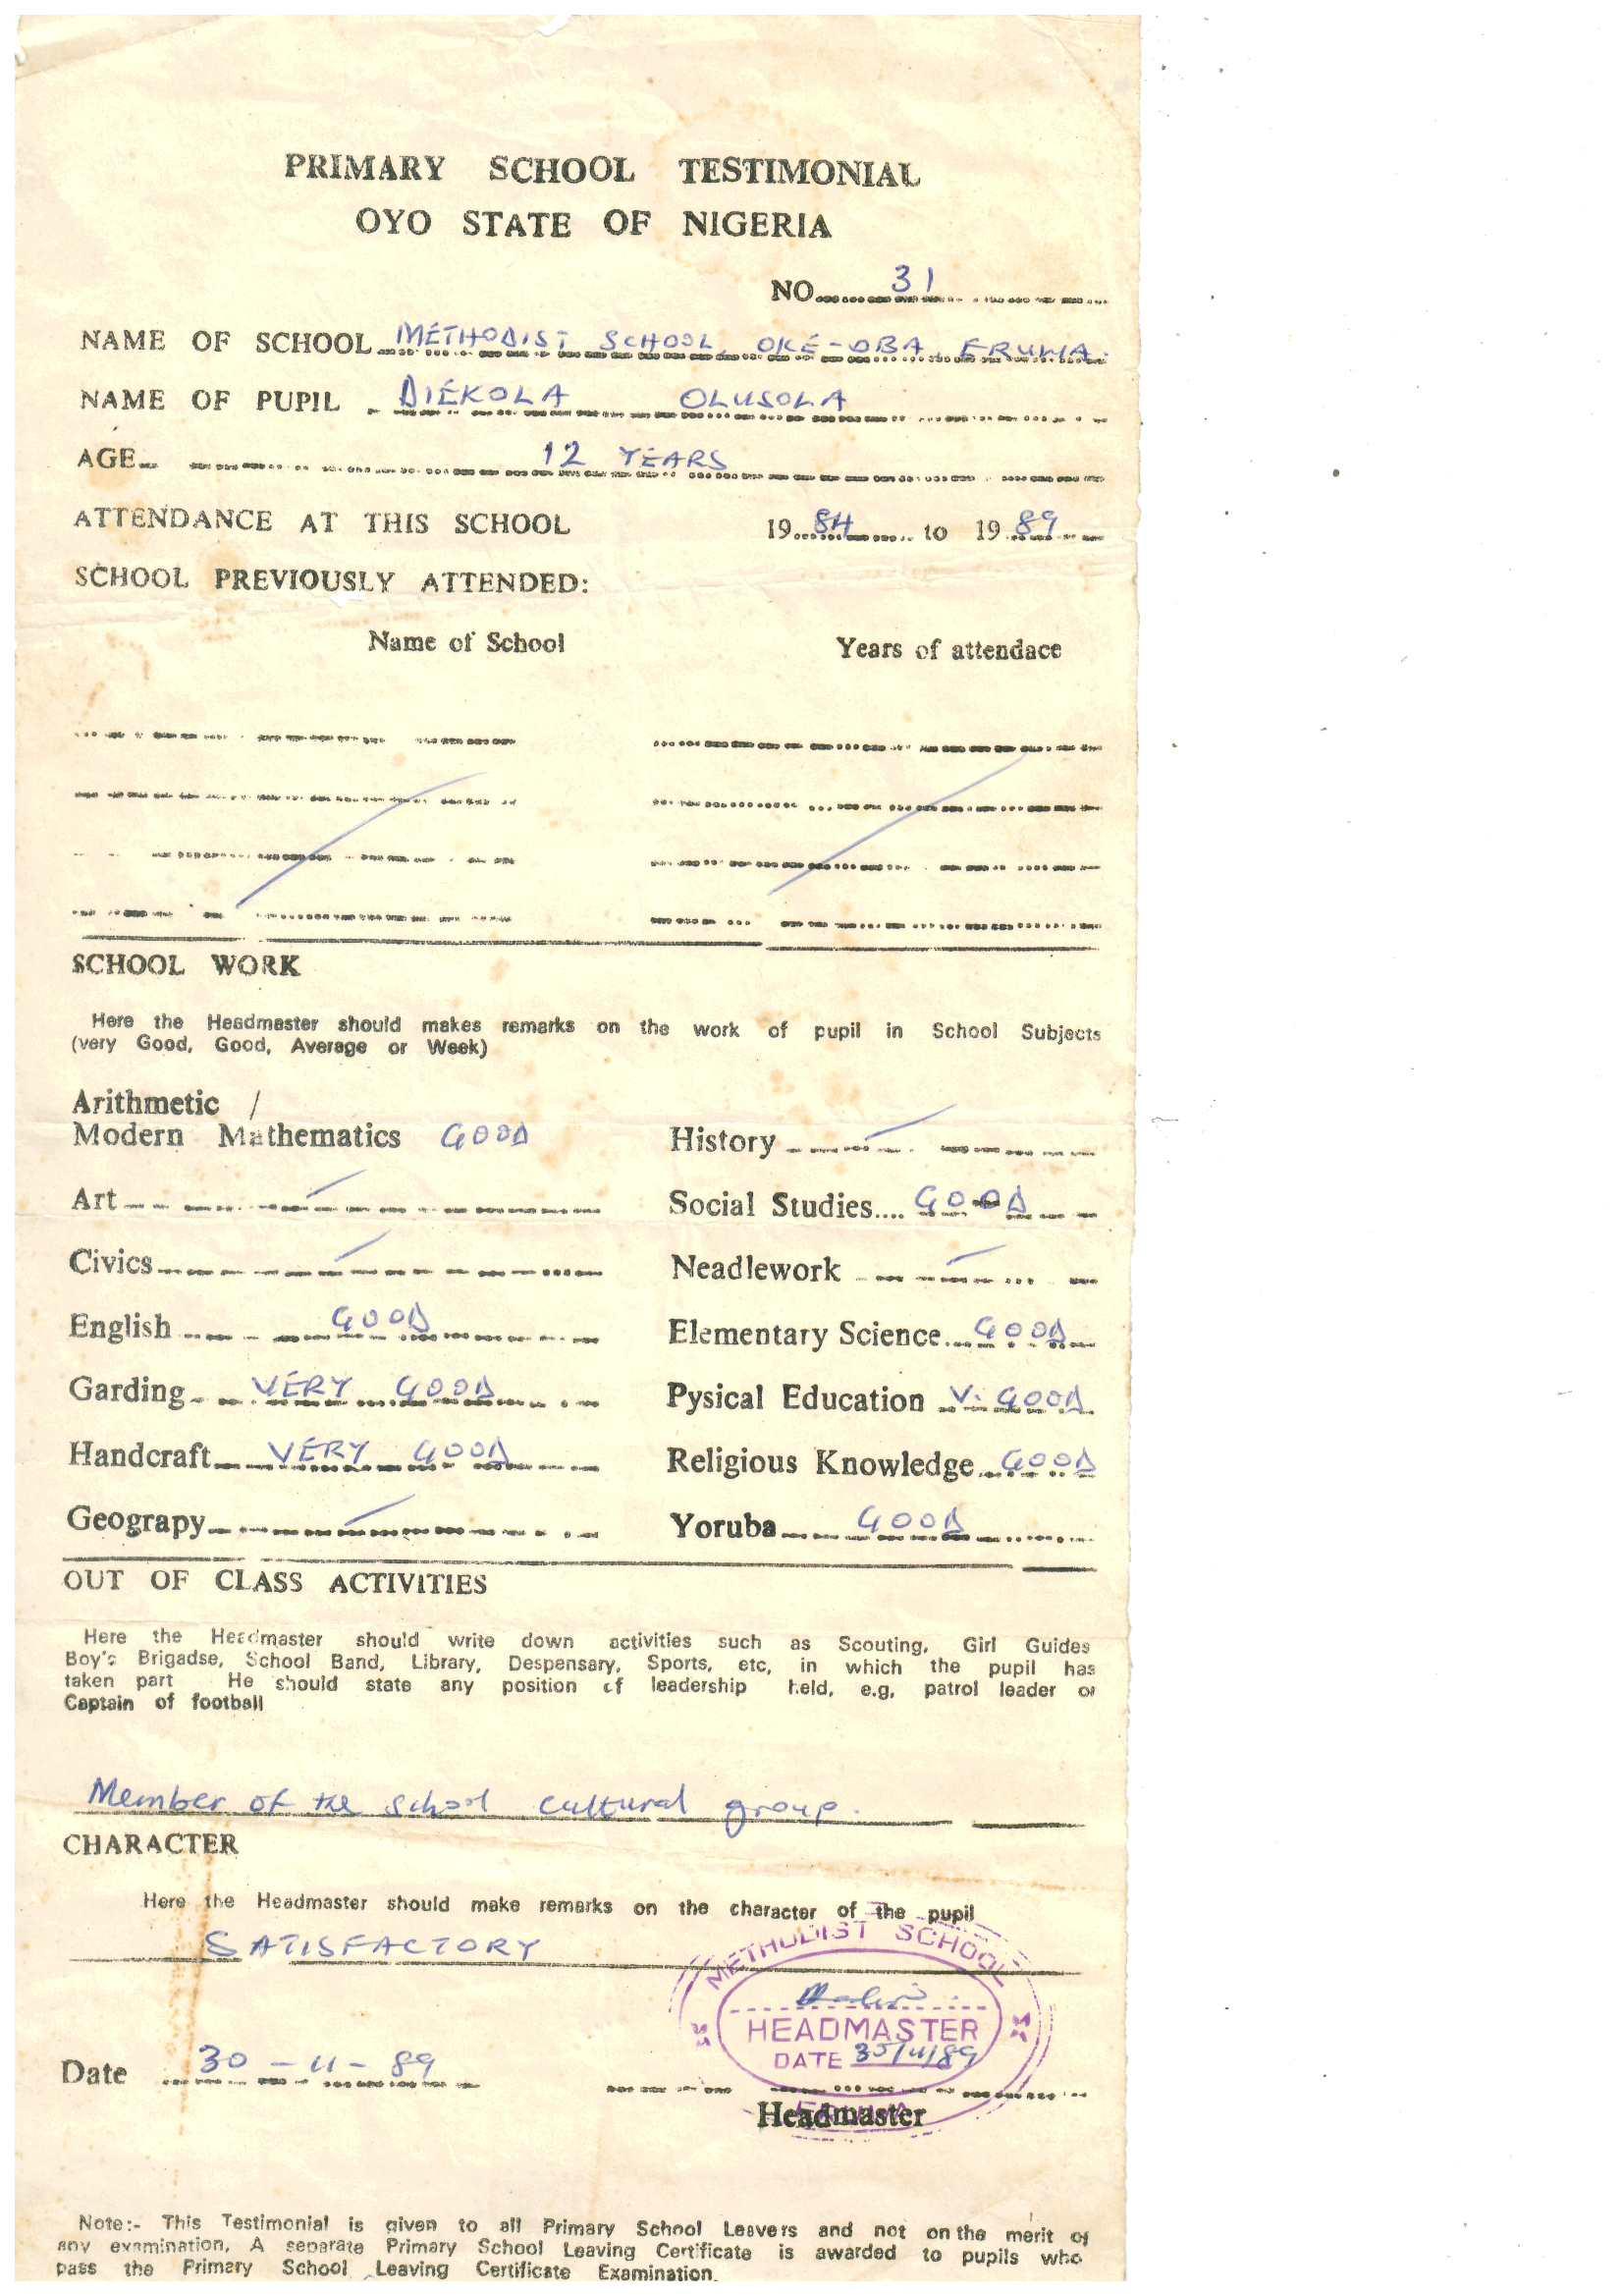 PRIMARY SCHOOL TESTIMONIAL
OYO STATE OF NIGERIA
NO 31
NAME OF SCHOOL METHODIST SCHOOL, OKE-OBA, ERUWA.
NAME OF PUPIL DIEKOLA OLUSOLA
AGE 12 YEARS
ATTENDANCE AT THIS SCHOOL 1984 to 1989
SCHOOL PREVIOUSLY ATTENDED:
Name of School Years of attendace
SCHOOL WORK
Here the Headmaster should makes remarks on the work of pupil in School Subjects
(very Good, Good, Average or Week)
Arithmetic /
Modern Mathematics GOOD History
Art Social Studies.... GOOD
Civics Neadlework
English GOOD Elementary Science GOOD
Garding VERY GOOD Pysical Education V. GOOD
Handcraft VERY GOOD Religious Knowledge GOOD
Geograpy Yoruba GOOD
OUT OF CLASS ACTIVITIES
Here the Headmaster should write down activities such as Scouting, Girl Guides
Boy's Brigadse, School Band, Library, Despensary, Sports, etc, in which the pupil has
taken part He should state any position of leadership held, e.g, patrol leader or
Captain of football
Member of the school cultural group.
CHARACTER
Here the Headmaster should make remarks on the character of the pupil
SATISFACTORY
METHODIST SCHOOL
HEADMASTER
DATE 30/11/89
Date 30-11-89
ERUWA
Headmaster
Note:- This Testimonial is given to all Primary School Leavers and not on the merit of
any examination, A separate Primary School Leaving Certificate is awarded to pupils who
pass the Primary School Leaving Certificate Examination.